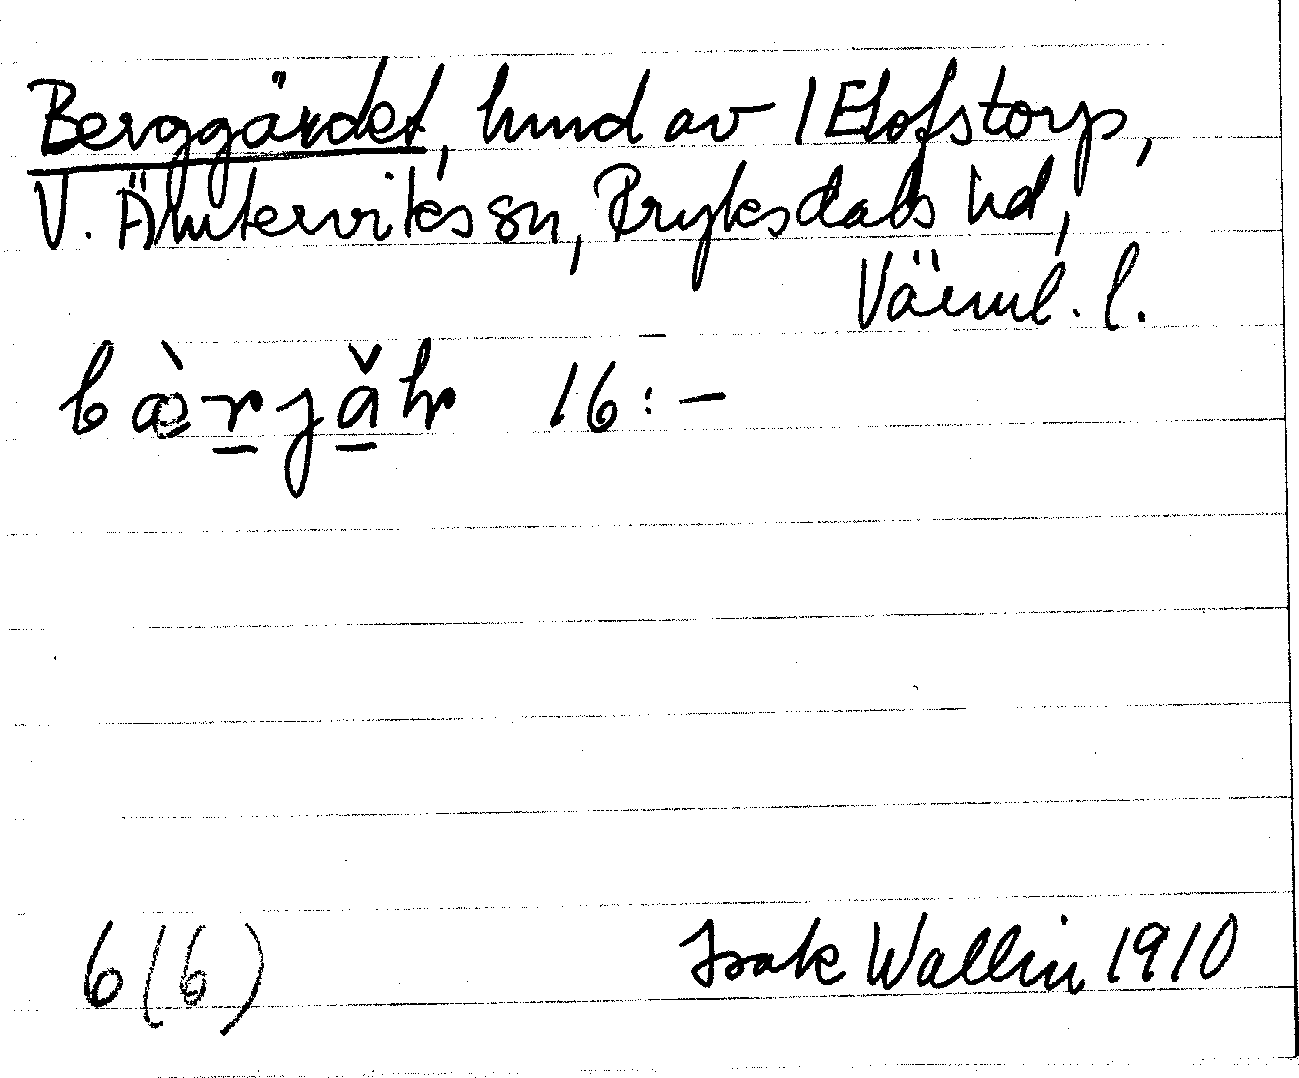 Berggärdet, hmd av 1 Elofstorp,
V. Ämterviks sn, Fryksdals hd,
Värml. l.
bæ̀rjǎ 16:-
6 (6)
Isak Wallin 1910